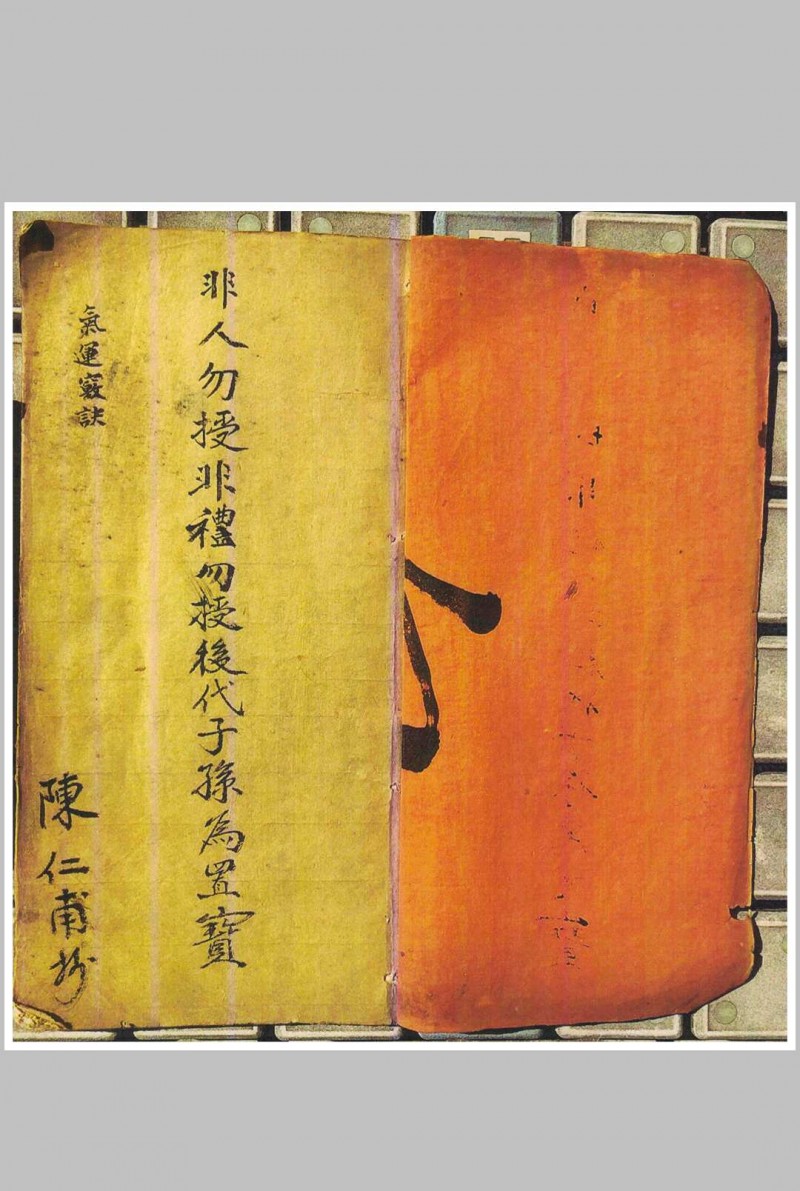 非人勿授非禮勿授後代子孫為置寶
氣運竅訣
陳仁甫抄